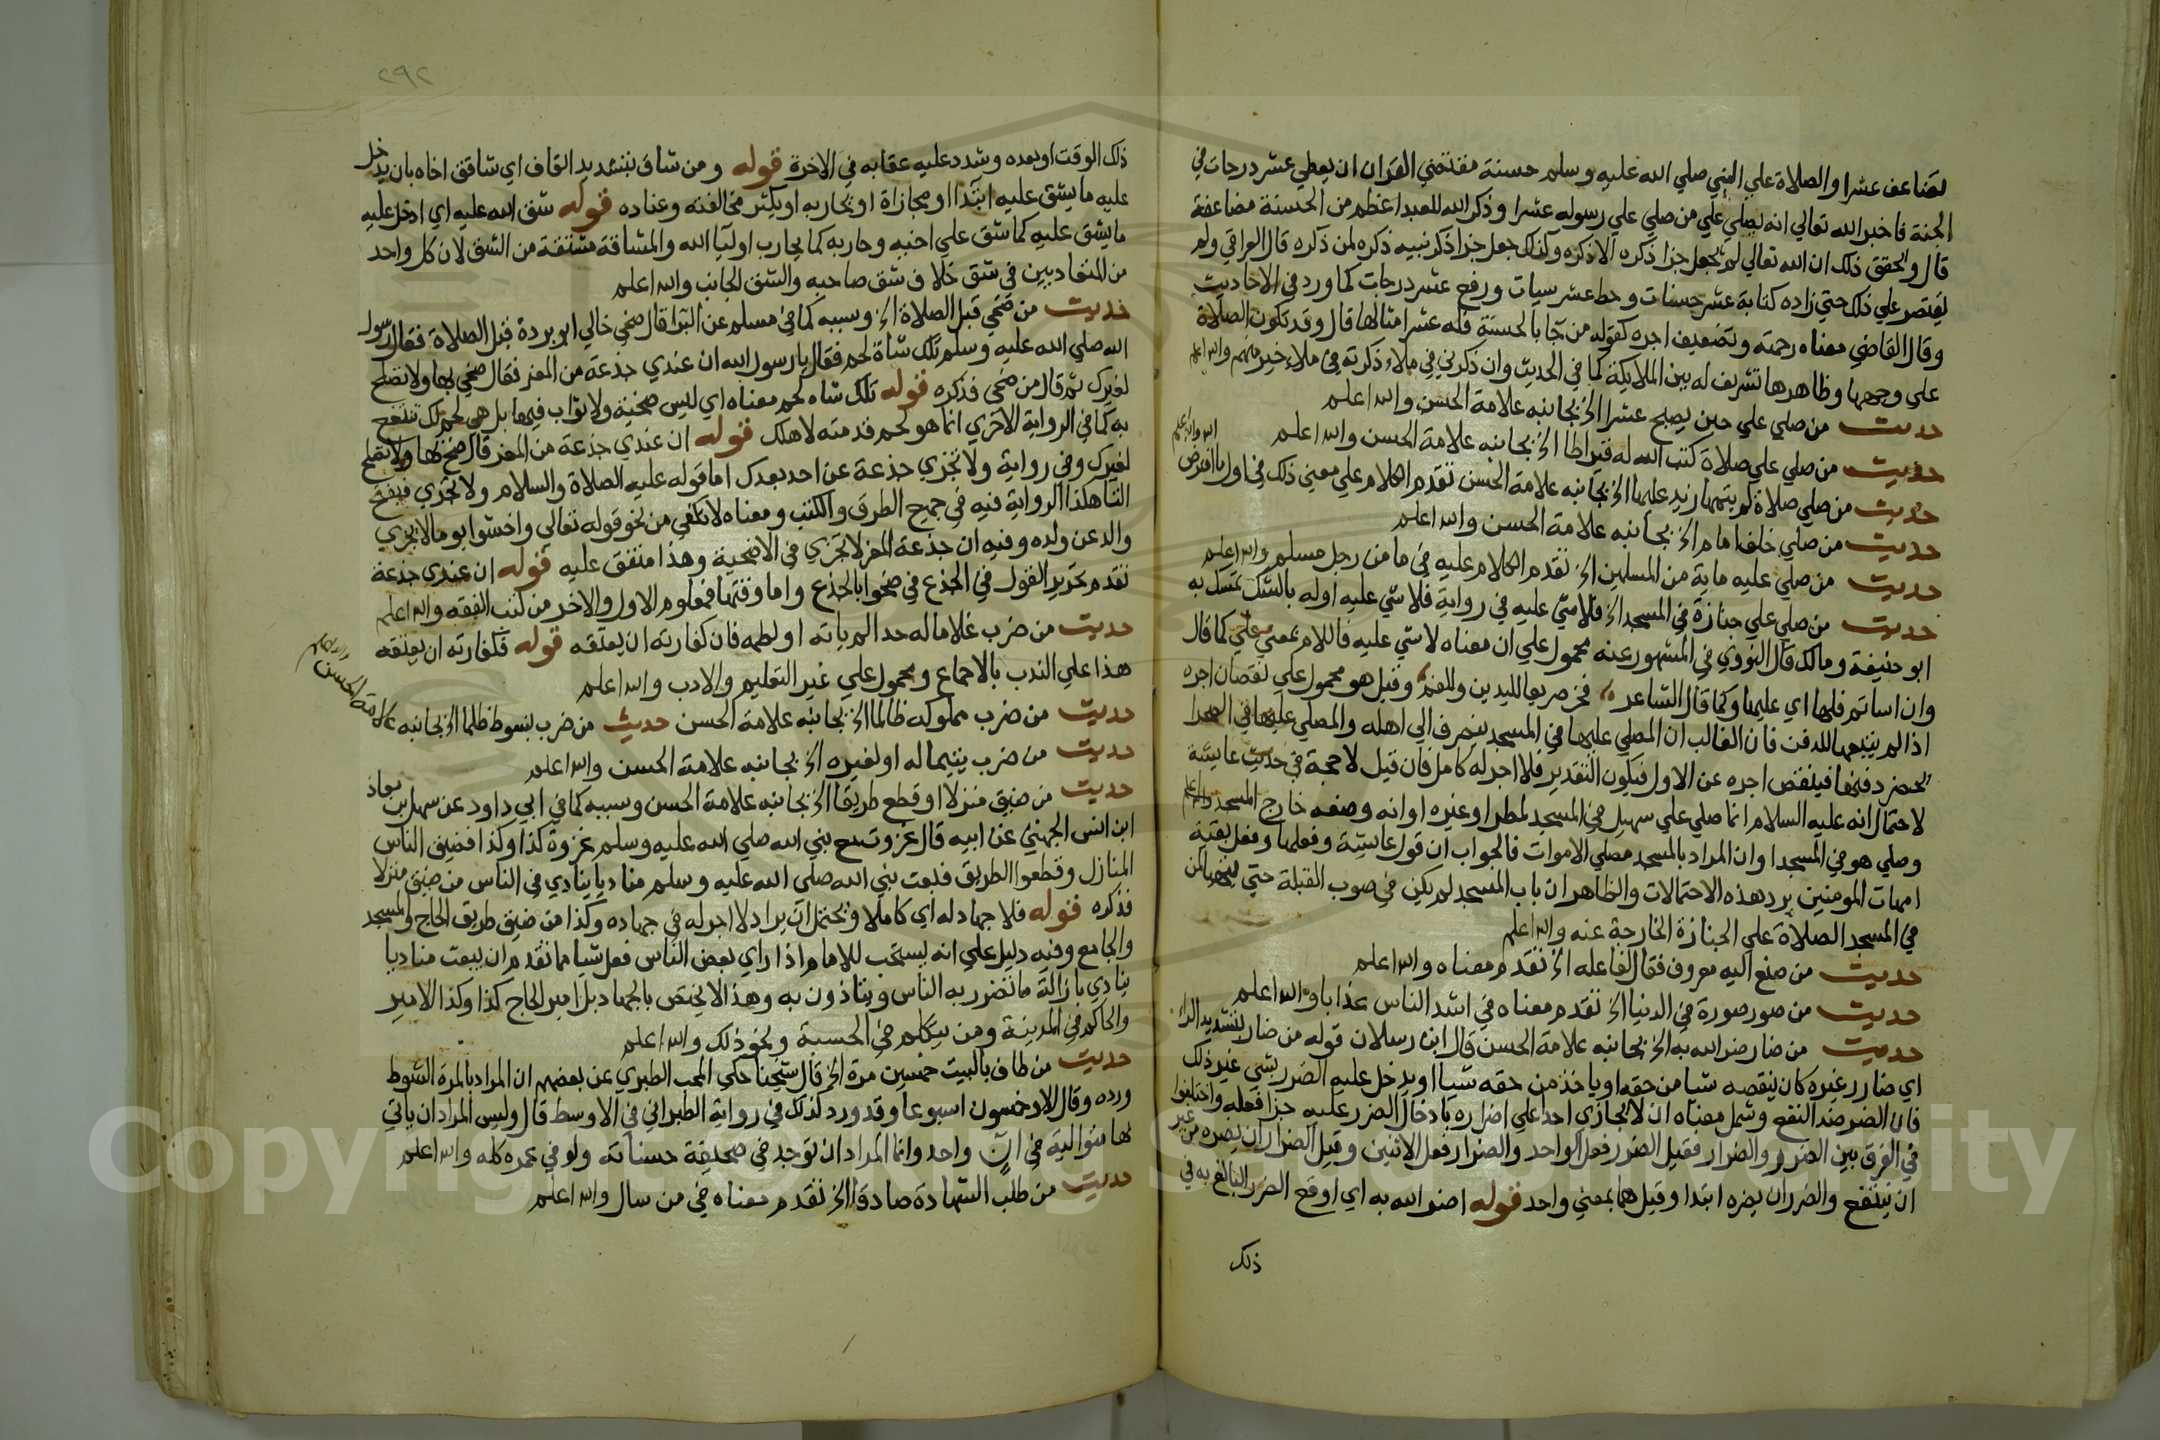 تضاعف عشرا والصلاة علي النبي صلي الله عليه وسلم حسنة مقتضي القران ان يعطي عشر درجات في
الجنة فاخبر الله تعالي انه يصلي علي من صلي علي رسوله عشرا وذكر الله للعبد اعظم من الحسنة مضاعفة
قال وتحقيق ذلك ان الله تعالي لم يجعل جزا ذكره الا ذكره وكذلك جعل جزا ذكر نبيه ذكره لمن ذكره قال العراقي ولم
يقتصر علي ذلك حتي زاده كتابة عشر حسنات وحط عشر سيات ورفع عشر درجات كما ورد في الاحاديث
وقال القاضي معناه رحمته وتضعيف اجره كقوله من جا بالحسنة فله عشر امثالها قال وقد تكون الصلاة
علي وجهها وظاهرها تشريف له بين الملايكة كما في الحديث وان ذكرني في ملاء ذكرته في ملاء خير منهم والله اعلم
حديث من صلي علي حين يصبح عشرا الخ بجانبه علامة الحسن والله اعلم
حديث من صلي علي صلاة كتب الله له قيراطا الخ بجانبه علامة الحسن والله اعلم
حديث من صلي صلاة لم يتمها زيد عليها الخ بجانبه علامة الحسن تقدم الكلام علي معني ذلك في اول ما افترض
الله والله اعلم
حديث من صلي خلف امام الخ بجانبه علامة الحسن والله اعلم
حديث من صلي عليه ماية من المسلمين الخ تقدم الكلام عليه في ما من رجل مسلم والله اعلم
حديث من صلي علي جنازة في المسجد الخ فلا شي عليه في رواية فلا شي عليه اوله بالشك تمسك به
ابو حنيفة ومالك قال النووي في المشهور عنه محمول علي ان معناه لا شي عليه فاللام بمعني علي كما قال
وان اساتم فلها اي عليها وكما قال الشاعر فخر صريعا لليدين وللفم وقيل هو محمول علي نقصان اجره
اذا لم يتبعها للدفن فان الغالب ان المصلي عليها في المسجد ينصرف الي اهله والمصلي عليها في الصحرا
يحضر دفنها فينقص اجره عن الاول فيكون التقدير فلا اجر له كامل فان قيل لا حجة في حديث عايشة
لاحتمال انه عليه السلام انما صلي علي سهيل في المسجد لمطر او غيره او انه وضعه خارج المسجد
وصلي هو في المسجد او ان المراد بالمسجد مصلي الاموات فالجواب ان قول عايشة وفعلها وفعل بقية
امهات المومنين يرد هذه الاحتمالات والظاهر ان باب المسجد لم يكن في صوب القبلة حتي يتهيا لمن
في المسجد الصلاة علي الجنازة الخارجة عنه والله اعلم
حديث من صنع اليه معروف فقال لفاعله الخ تقدم معناه والله اعلم
حديث من صور صورة في الدنيا الخ تقدم معناه في اشد الناس عذابا والله اعلم
حديث من ضار ضر الله به الخ بجانبه علامة الحسن قال ابن رسلان قوله من ضار بتشديد الرا
اي ضارر غيره كان ينقصه شيا من حقه او ياخذ من حقه شيا او يدخل عليه الضرر بشي غير ذلك
فان الضر ضد النفع وشمل معناه ان لا يجازي احد علي اضراره بادخال الضرر عليه جزا فعله واختلفوا
في الفرق بين الضرر والضرار فقيل الضرر فعل الواحد والضرار فعل الاثنين وقيل الضرار ان يضره من غير
ان ينتفع والضرر ان يضره ابتدا وقيل هما بمعني واحد قوله اضر الله به اي اوقع الضرر البالغ به في
ذلك
٢٩٢
ذلك الوقت او بعده وشدد عليه عقابه في الاخرة قوله ومن شاق بتشديد القاف اي شاقق اخاه بان يدخل
عليه ما يشق عليه ابتدا او مجازاة او يحاربه او يكثر مخالفته وعناده قوله شق الله عليه اي ادخل عليه
ما يشق عليه كما شق علي اخيه وحاربه كما يحارب اوليا الله والمشاقة مشتقة من الشق لان كل واحد
من المتعاديين في شق خلاف شق صاحبه والشق الجانب والله اعلم
حديث من ضحي قبل الصلاة الخ وسببه كما في مسلم عن البرا قال ضحي خالي ابو بردة قبل الصلاة فقال رسول
الله صلي الله عليه وسلم تلك شاة لحم فقال يا رسول الله ان عندي جذعة من المعز فقال ضحي بها ولا تصلح
لغيرك ثم قال من ضحي فذكره قوله تلك شاه لحم معناه اي ليس ضحية ولا ثواب فيها بل هي لحم لك تنتفع
به كما في الرواية الاخري انما هو لحم قدمته لاهلك قوله ان عندي جذعة من المعز قال ضح بها ولا تصلح
لغيرك وفي رواية ولا تجزي جذعة عن احد بعدك اما قوله عليه الصلاة والسلام ولا تجزي فبفتح
التا هكذا الرواية فيه في جميع الطرق والكتب ومعناه لا تكفي من نحو قوله تعالي واخشوا يوما لا يجزي
والد عن ولده وفيه ان جذعة المعز لا تجزي في الاضحية وهذا متفق عليه قوله ان عندي جذعة
تقدم تحرير القول في الجذع في ضحوا بالجذع واما وقتها فمعلوم الاول والاخر من كتب الفقه والله اعلم
حديث من ضرب غلاما له حدا لم ياته او لطمه فان كفارته ان يعتقه قوله فكفارته ان يعتقه
هذا علي الندب بالاجماع ومحمول علي غير التعليم والادب والله اعلم
حديث من ضرب مملوكه ظالما الخ بجانبه علامة الحسن حديث من ضرب بسوط ظلما الخ بجانبه علامة الحسن والله اعلم
حديث من ضرب يتيما له او لغيره الخ بجانبه علامة الحسن والله اعلم
حديث من ضيق منزلا او قطع طريقا الخ بجانبه علامة الحسن وسببه كما في ابي داود عن سهل بن معاذ
ابن انس الجهني عن ابيه قال غزوت مع نبي الله صلي الله عليه وسلم غزوة كذا وكذا فضيق الناس
المنازل وقطعوا الطريق فبعث نبي الله صلي الله عليه وسلم مناديا ينادي في الناس من ضيق منزلا
فذكره قوله فلا جهاد له اي كاملا ويحتمل ان يراد لا اجر له في جهاده وكذا من ضيق طريق الحاج والمسجد
والجامع وفيه دليل علي انه يستحب للامام اذا راي بعض الناس فعل شيا مما تقدم ان يبعث مناديا
ينادي بازالة ما تضرر به الناس ويتاذون به وهذا لا يختص بالجهاد بل امير الحاج كذا وكذا الامير
والحاكم في المدينة ومن يتكلم في الحسبة ونحو ذلك والله اعلم
حديث من طاف بالبيت خمسين مرة الخ قال شيخنا حكي المحب الطبري عن بعضهم ان المراد بالمرة الشوط
ورده وقال المراد خمسون اسبوعا وقد ورد كذلك في رواية الطبراني في الاوسط قال وليس المراد ان ياتي
بها متوالية في ان واحد وانما المراد ان توجد في صحيفة حسناته ولو في عمره كله والله اعلم
حديث من طلب الشهادة صادقا الخ تقدم معناه في من سال والله اعلم
Copyright © King Saud University